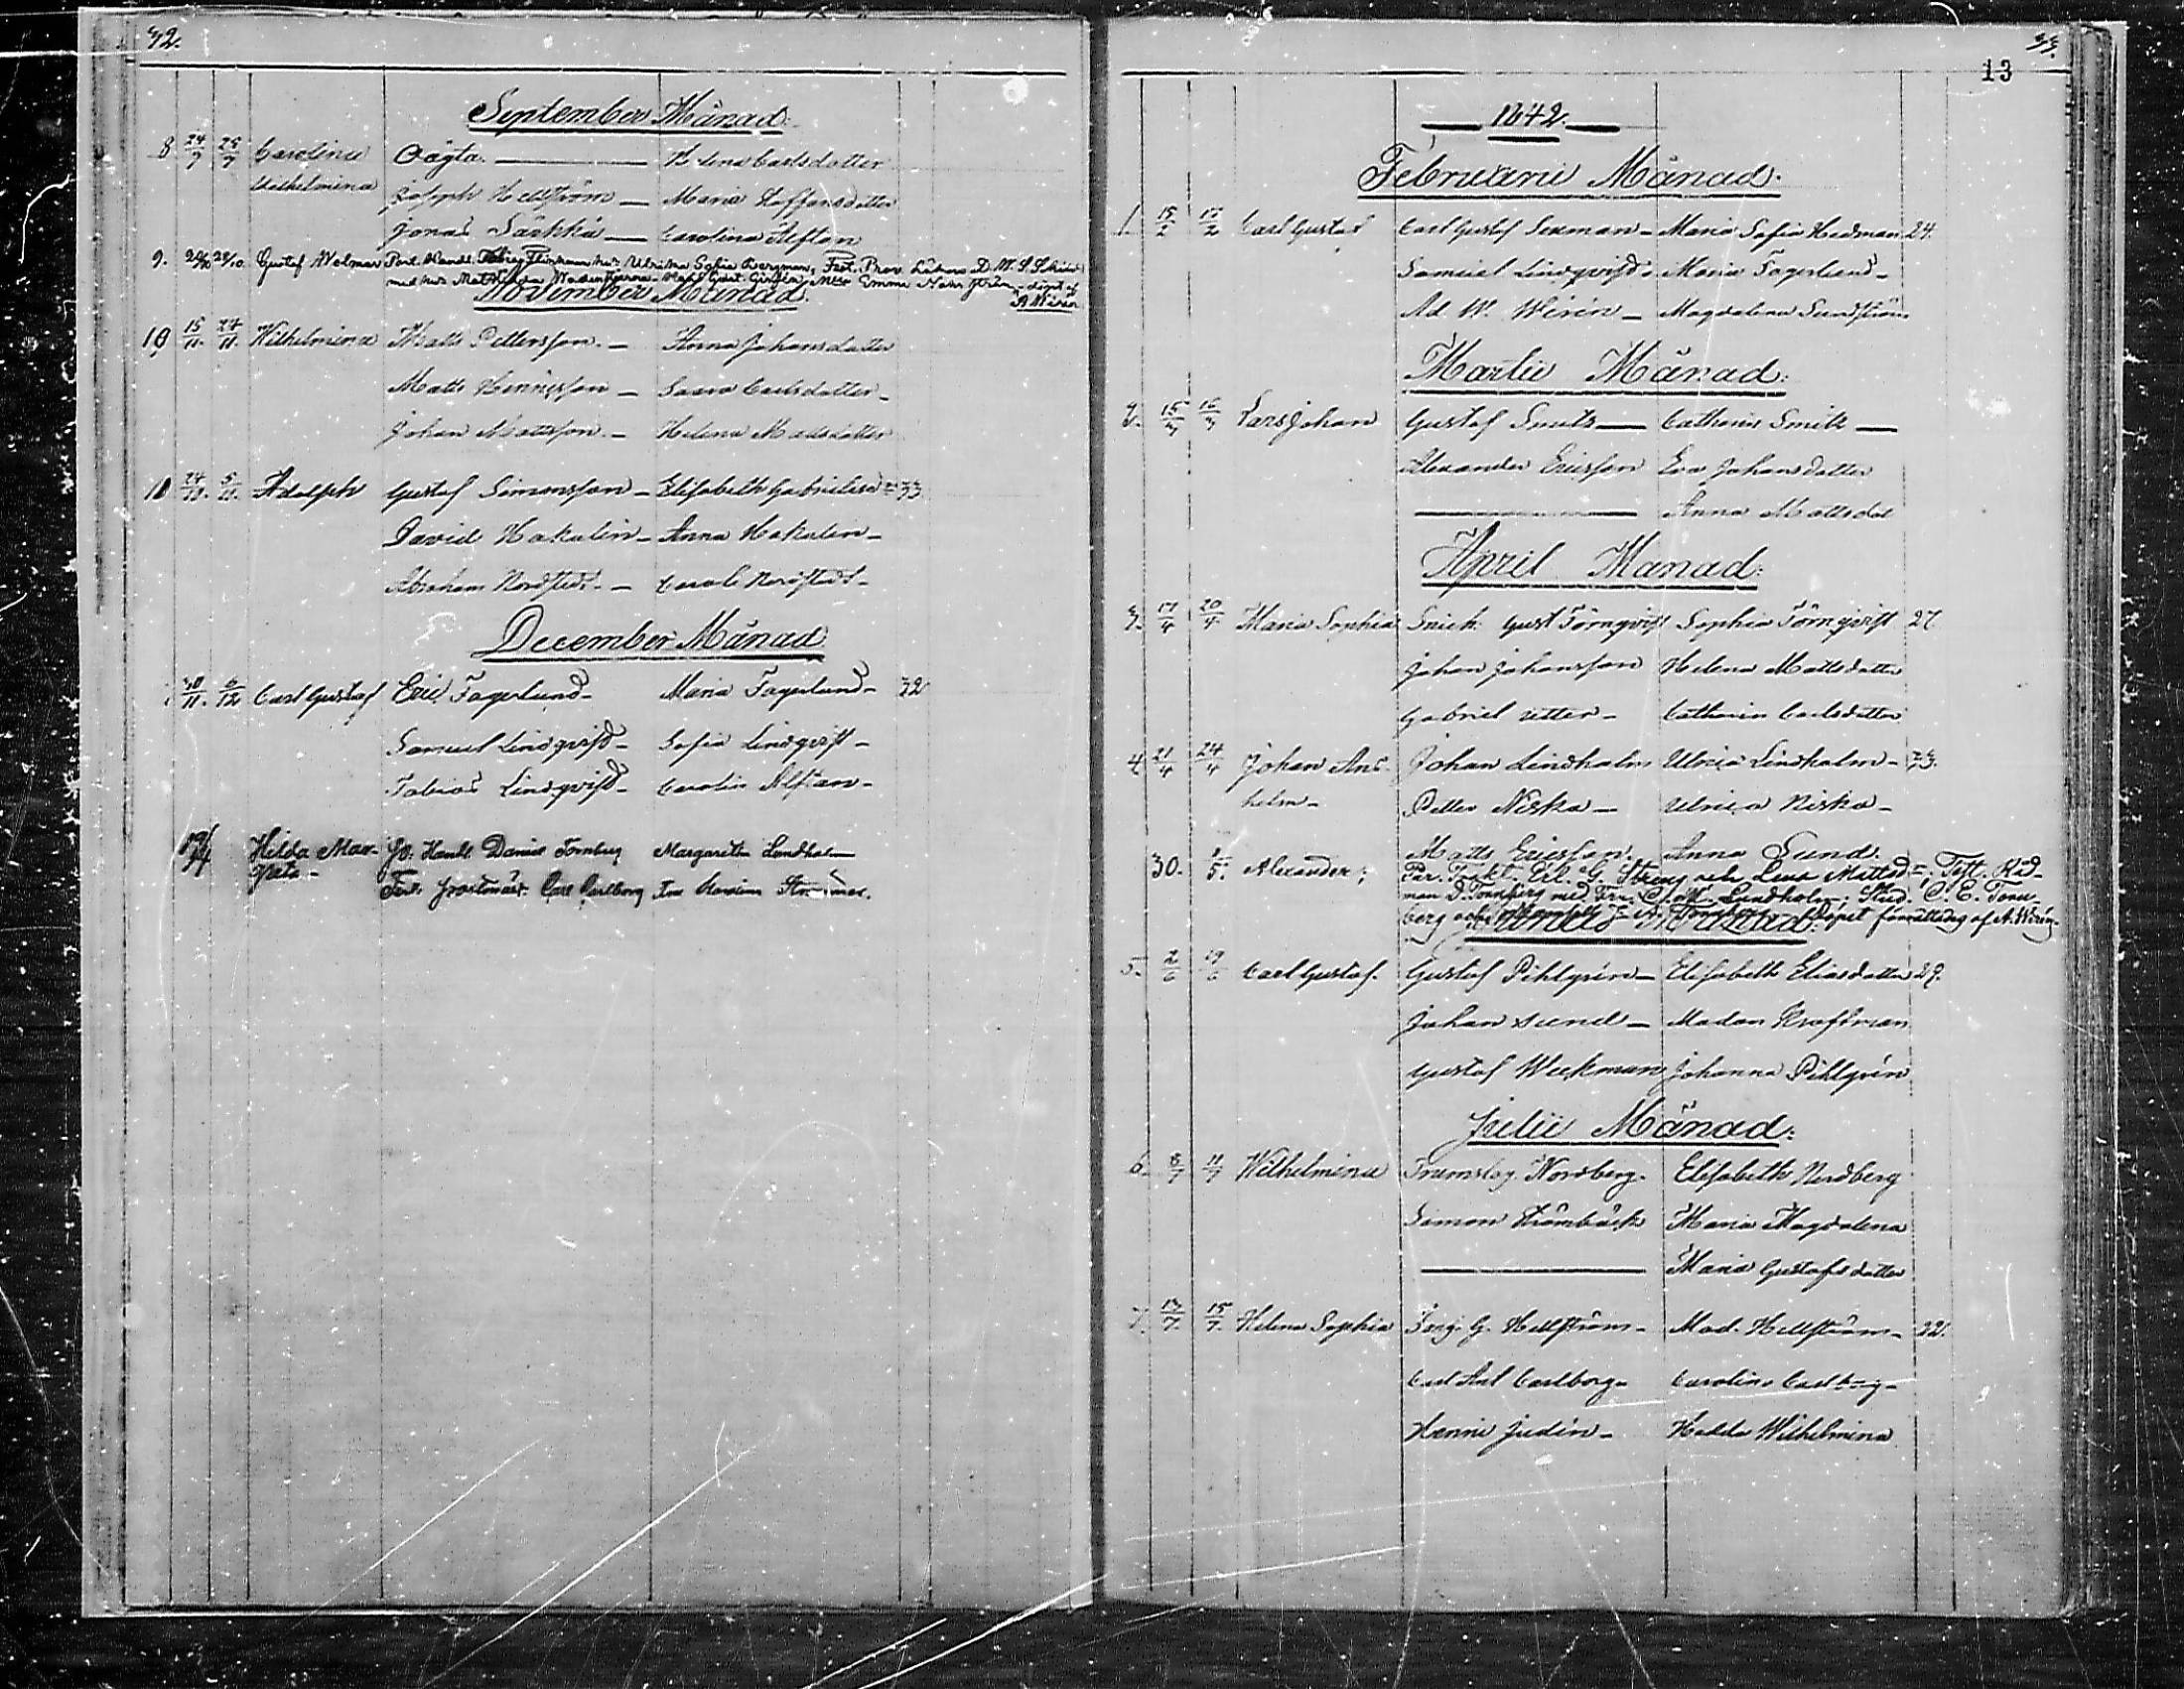 32.
September Månad.
8 24/9 25/9 Carolina Oägta. — Helena Carlsdotter
Wilhelmina Joseph Hellström — Maria Staffansdotter
Jonas Särkkä — Carolina Alftan
9. 28/10 Gustaf Welmar Ulrika Sofia Bergman, Prov. Läkaren D. M.
med Mathilda Emma döpt af
November Månad. A Wirén
10 15/11. 27/11. Wilhelmina Matts Pettersson. — Anna Johansdotter
Matts Henricsson — Saara Carlsdotter —
Johan Mattsson. — Helena Mattsdotter
11 Adolph Gustaf Simonsson — Elisabeth Gabrielsd 33
David Hakalin — Anna Hakalin —
Abraham Nordstedt — Carol. Nordstedt —
December Månad
30/11. 6/12 Carl Gustaf Eric Fagerlund — Maria Fagerlund — 32
Samuel Lindqvist — Sofia Lindqvist —
Tobias Lindqvist — Carolin Alftan —
Hilda Mar- Handl. Daniel Tornberg Margaretha Lundholm
greta — Carl Carlborg
33.
13
1842.
Februarii Månad.
1. 15/2 17/2 Carl Gustaf Carl Gustaf Sexman — Maria Sofia Hedman 24.
Samuel Lindqvist — Maria Fagerlund —
Ad. W. Wirén — Magdalena Sundström
Martii Månad.
2. 15/3 16/3 Lars Johan Gustaf Smits — Catharin Smits —
Alexander Ericsson Eva Johansdotter
— Anna Mattsdot
April Månad.
3. 17/4 20/4 Maria Sophia Snick. Gust Törnqvist Sophia Törnqvist 27
Johan Johansson Helena Mattsdotter
Gabriel Utter — Catharin Carlsdotter
4. 21/4 24/4 Johan Ans- Johan Lindholm Ulrica Lindholm — 33.
helm — Petter Niska — Ulrica Niska —
Matts Ericsson. Anna Sund.
30. 5. Alexander; G. Streng och Lena Mattsd. Test. Råd-
man D. Tornberg med Fru C. W. Lundholm; Stud. C. E. Torn-
berg och dopet förrättadeg af A. Wirén.
Månad.
5. 2/6 19/6 Carl Gustaf. Gustaf Pihlgrén — Elisabeth Eliasdotter 29.
Johan Sund — Madam Kraftman
Gustaf Weckman Johanna Pihlgrén
Julii Månad.
6. 8/7 11/7 Wilhelmina Trumslag. Nordberg. Elisabeth Nordberg
Simon Strömbäck Maria Magdalena
— Maria Gustafsdotter
7. 13/7. 15/7. Helena Sophia G. Hellström — Mad. Hellström — 22.
Carl Axl Carlborg — Carolina Carlborg —
Henric Judén — Hedda Wilhelmina